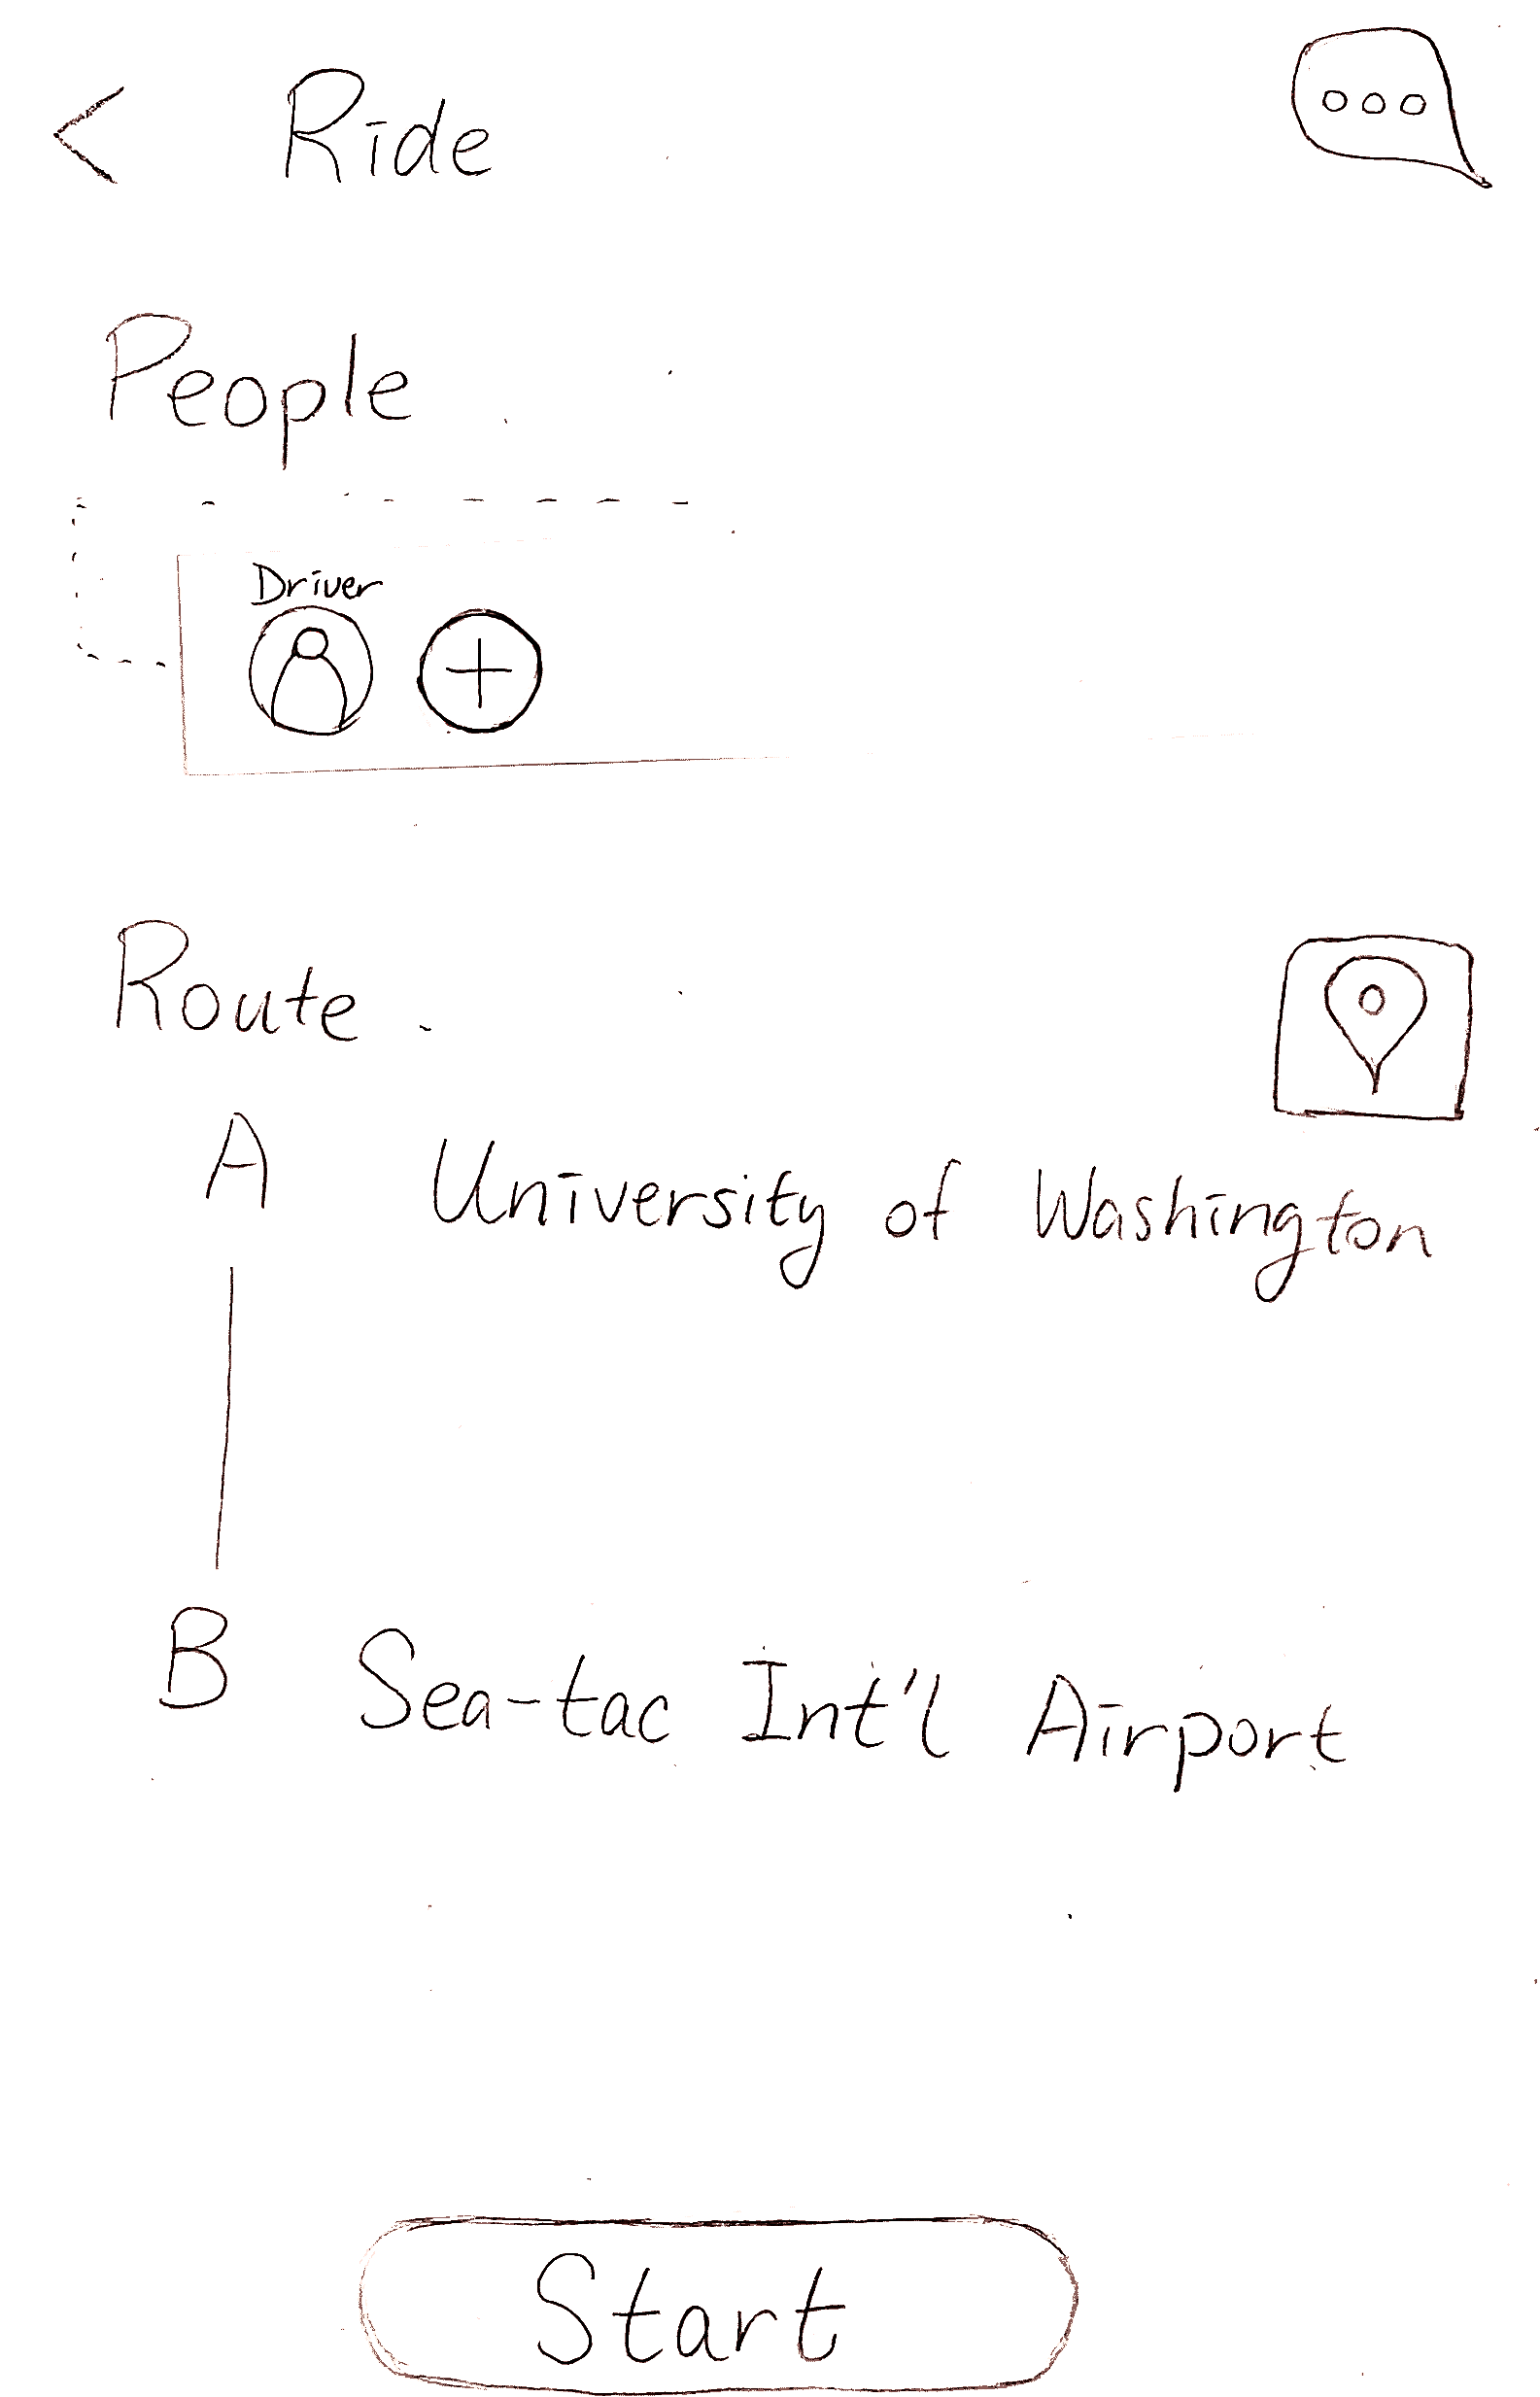 < Ride
People
Driver
+
Route
A University of Washington
B Sea-tac Int'l Airport
Start